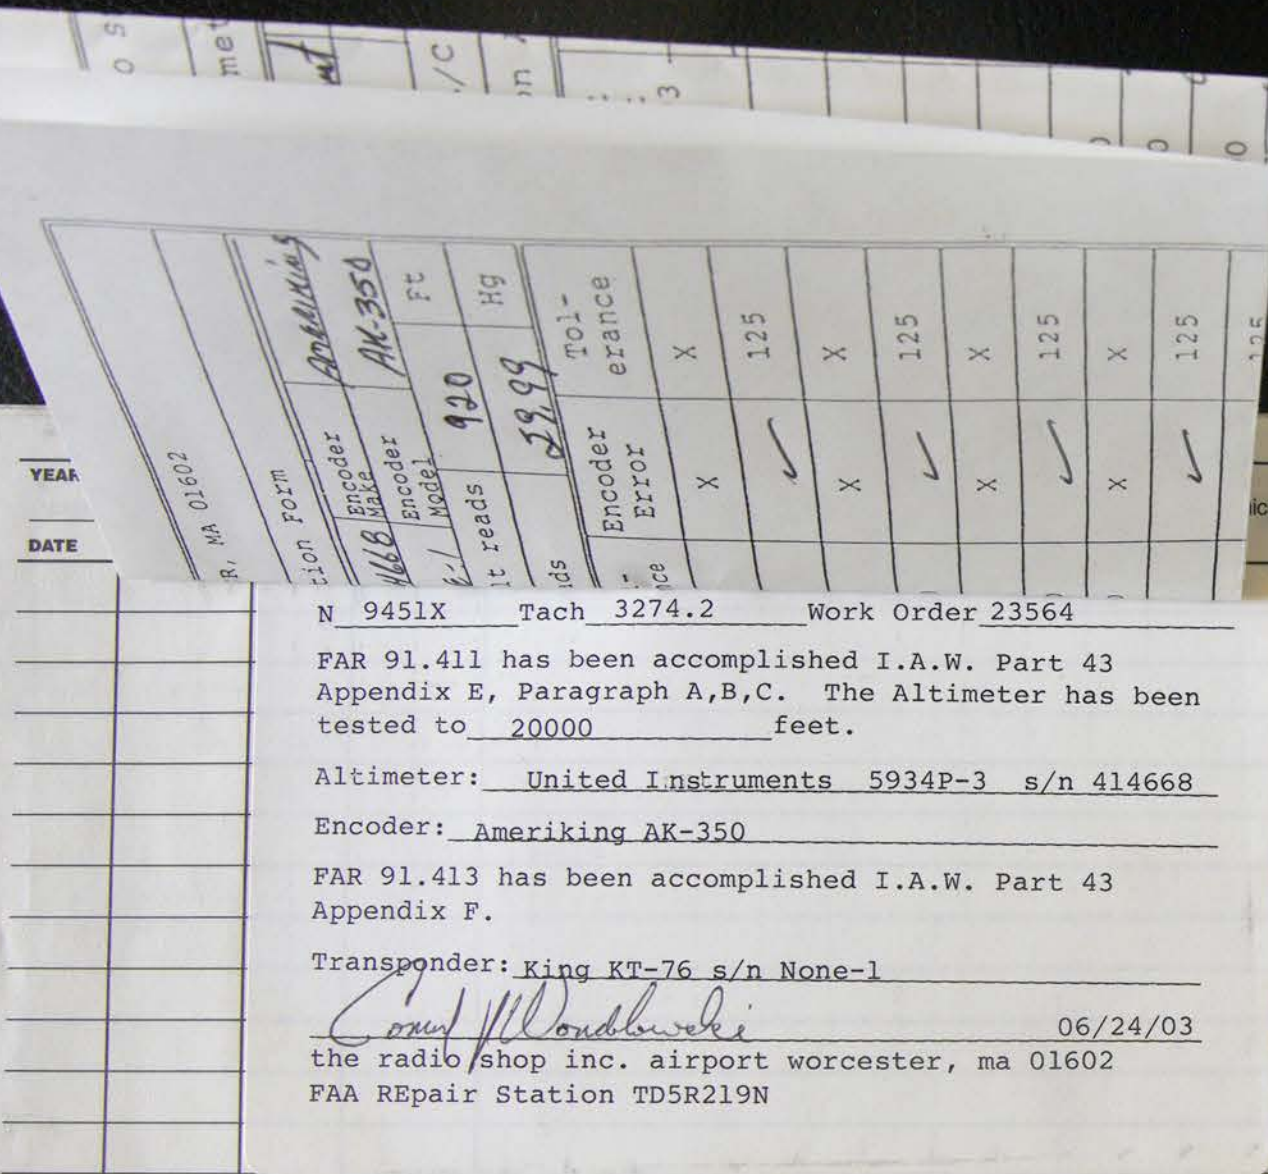 YEAR
DATE
MA 01602
tion Form
Encoder Make
Ameriking
4668
Encoder Model
AK-350
E-1
lt reads
920
Ft
ds
29,99
Hg
Encoder Error
Tol-
erance
X X
✓ 125
X X
✓ 125
X X
✓ 125
X X
✓ 125
125
N 9451X Tach 3274.2 Work Order 23564
FAR 91.411 has been accomplished I.A.W. Part 43
Appendix E, Paragraph A,B,C. The Altimeter has been
tested to 20000 feet.
Altimeter: United Instruments 5934P-3 s/n 414668
Encoder: Ameriking AK-350
FAR 91.413 has been accomplished I.A.W. Part 43
Appendix F.
Transponder: King KT-76 s/n None-1
06/24/03
the radio shop inc. airport worcester, ma 01602
FAA REpair Station TD5R219N